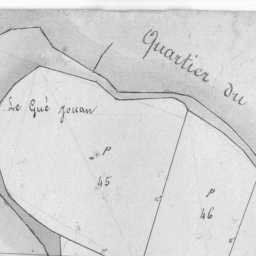 Quartier du
Le Gué Jouan
P
45
P
46